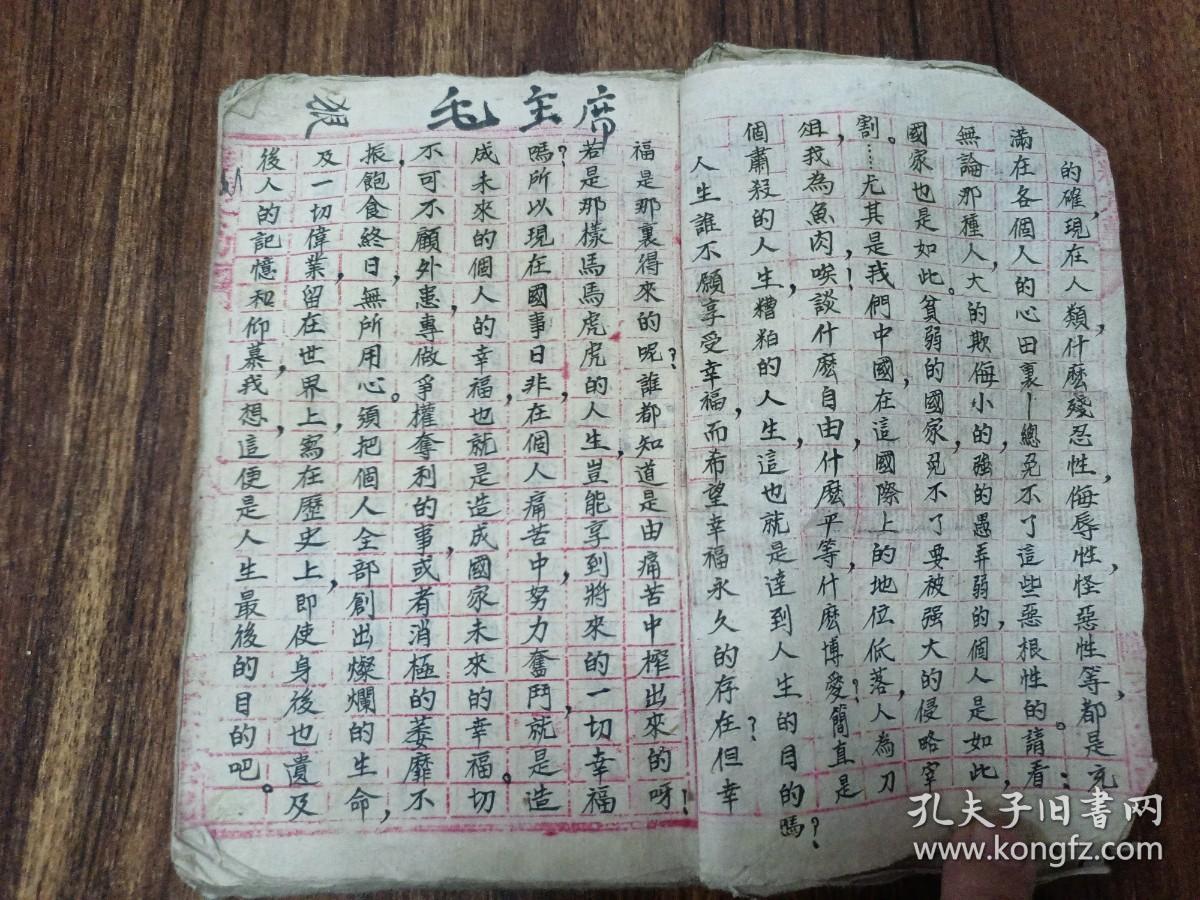 的確，現在人類，什麼殘忍性，侮辱性，怪惡性等，都是充
滿在各個人的心田裏—總免不了這些惡根性的。請看：
無論那種人，大的欺侮小的，強的愚弄弱的，個人是如此，
國家也是如此。貧弱的國家，免不了要被强大的侵略宰
割。…尤其是我們中國，在這國際上的地位低落，人為刀
俎，我為魚肉，唉！談什麼自由，什麼平等，什麼博愛？簡直是
個肅殺的人生，糟粕的人生，這也就是達到人生的目的嗎？
人生誰不願享受幸福，而希望幸福永久的存在？但幸
福是那裏得來的呢？誰都知道是由痛苦中榨出來的呀！
若是那樣馬馬虎虎的人生，豈能享到將來的一切幸福
嗎？所以現在國事日非，在個人痛苦中，努力奮鬥，就是造
成未來的個人的幸福，也就是造成國家未來的幸福。切
不可不顧外患，專做爭權奪利的事，或者消極的萎靡不
振，飽食終日，無所用心。須把個人全部創出燦爛的生命，
及一切偉業，留在世界上，寫在歷史上，即使身後也遺及
後人的記憶和仰慕，我想，這便是人生最後的目的吧。
毛主席
孔夫子旧书网
www.kongfz.com